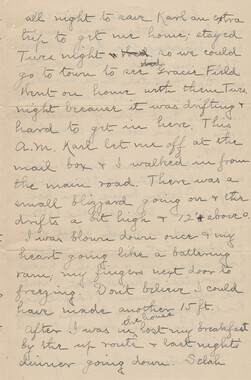 all night to save Karl an extra
trip to get me home; stayed
Tues night so we could
go to town to see Gracie Field
Went on home with them Tues.
night because it was drifting &
hard to get in here. This
A.M. Karl let me off at the
mail box & I walked in from
the main road. There was a
small blizzard going on & the
drifts a bit high & 12 above 0.
I was blown down once & my
heart going like a battering
ram, my fingers next door to
freezing. Don't believe I could
have made another 15 ft.
After I was in de house lost my breakfast
by the up route & last nights
dinner going down. Selah